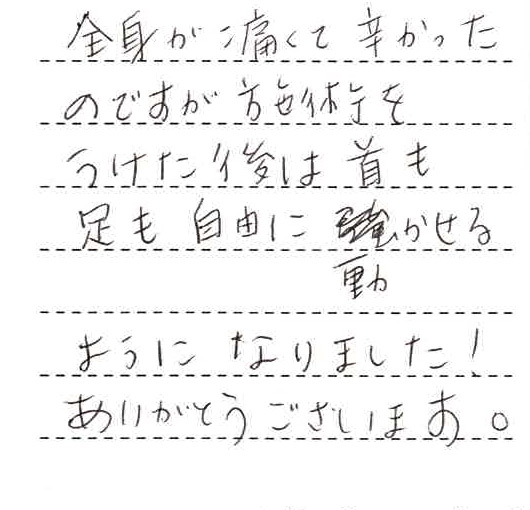 全身が痛くて辛かった
のですが施術を
うけた後は首も
足も自由にかせる
動
ようになりました!
ありがとうございます。